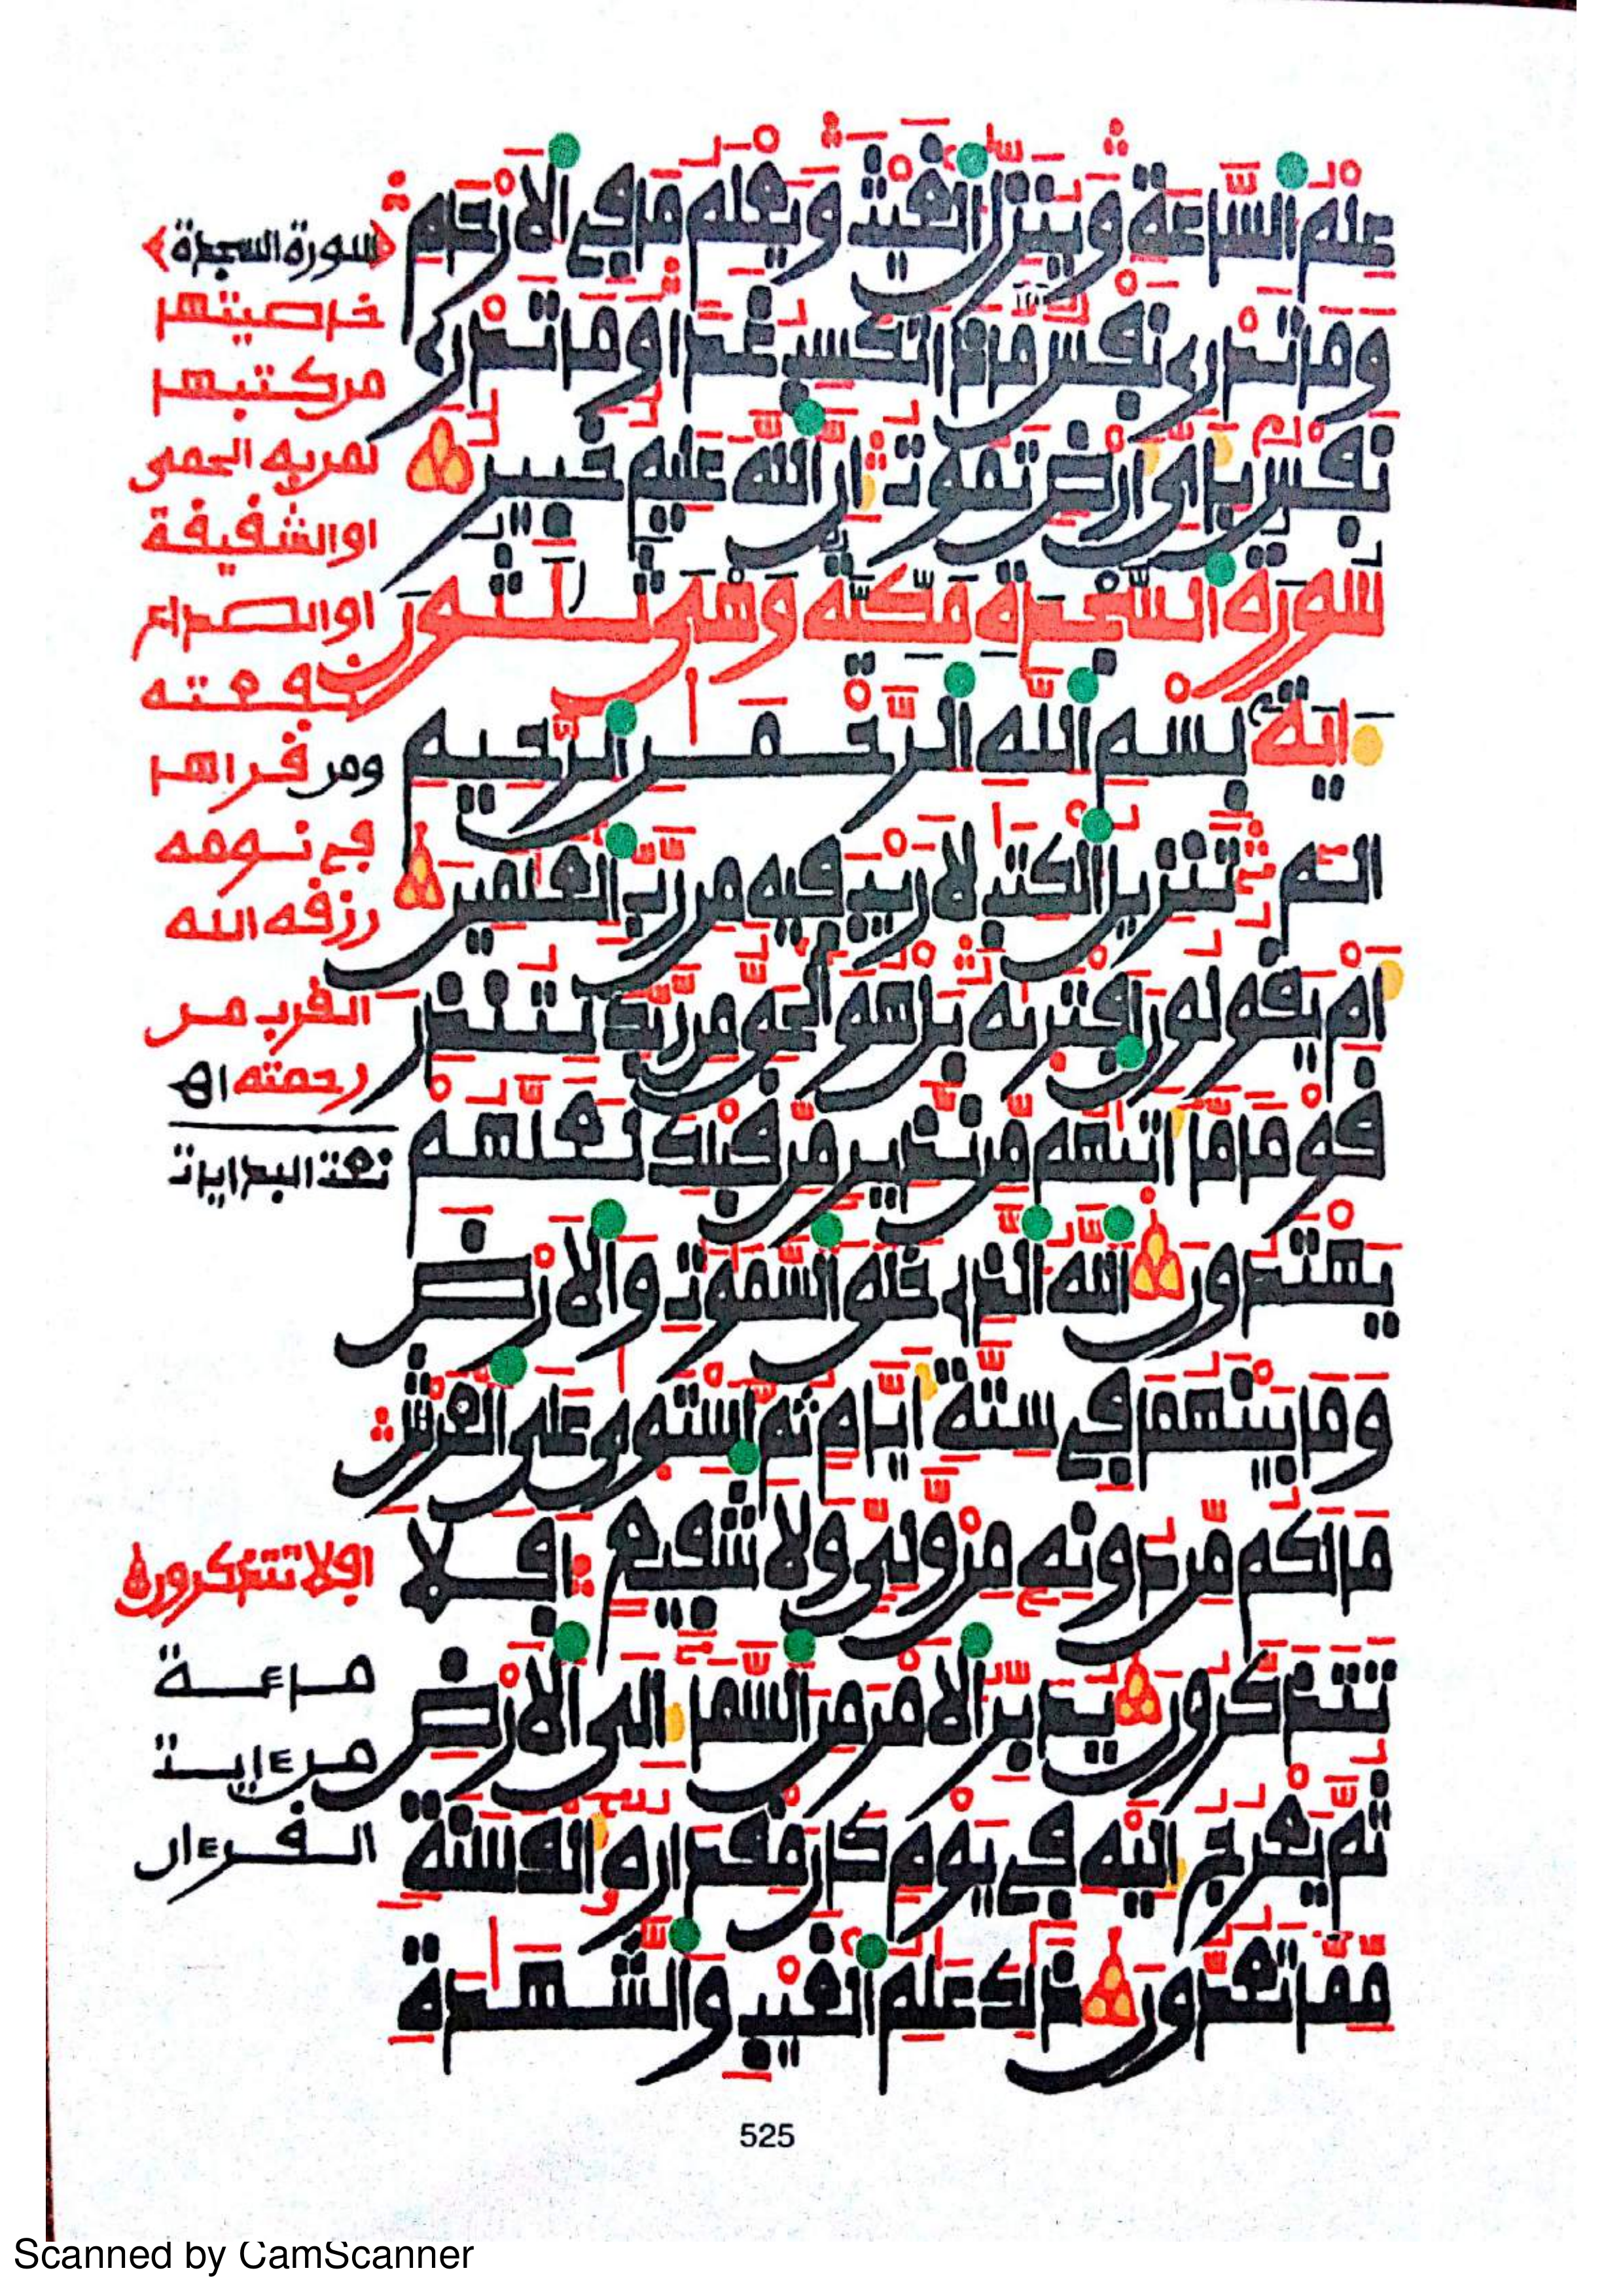 علم الساعة وينزل الغيث ويعلم ما في الارحام
وما تدري نفس ماذا تكسب غدا وما تدري
نفس باي ارض تموت ان الله عليم خبير
سورة السجدة مكية وهي ثلثون
اية بسم الله الرحمن الرحيم
الم تنزيل الكتب لا ريب فيه من رب العلمين
ام يقولون افتريه بل هو الحق من ربك لتنذر
قوما ما اتيهم من نذير من قبلك لعلهم
يهتدون الله الذي خلق السموت والارض
وما بينهما في ستة ايام ثم استوى على العرش
ما لكم من دونه من ولي ولا شفيع افلا
تتذكرون يدبر الامر من السما الى الارض
ثم يعرج اليه في يوم كان مقداره الف سنة
مما تعدون ذلك علم الغيب والشهدة
﴿سورة السجدة﴾
خاصيتها
من كتبها
لمن به الحمى
او الشقيقة
او الصداع
نفعته
ومن قراها
في نومه
رزقه الله
القرب من
رحمته اه
نعت البدايات
افلا تتذكرون
مائة
من ءايت
القرءان
525
Scanned by CamScanner